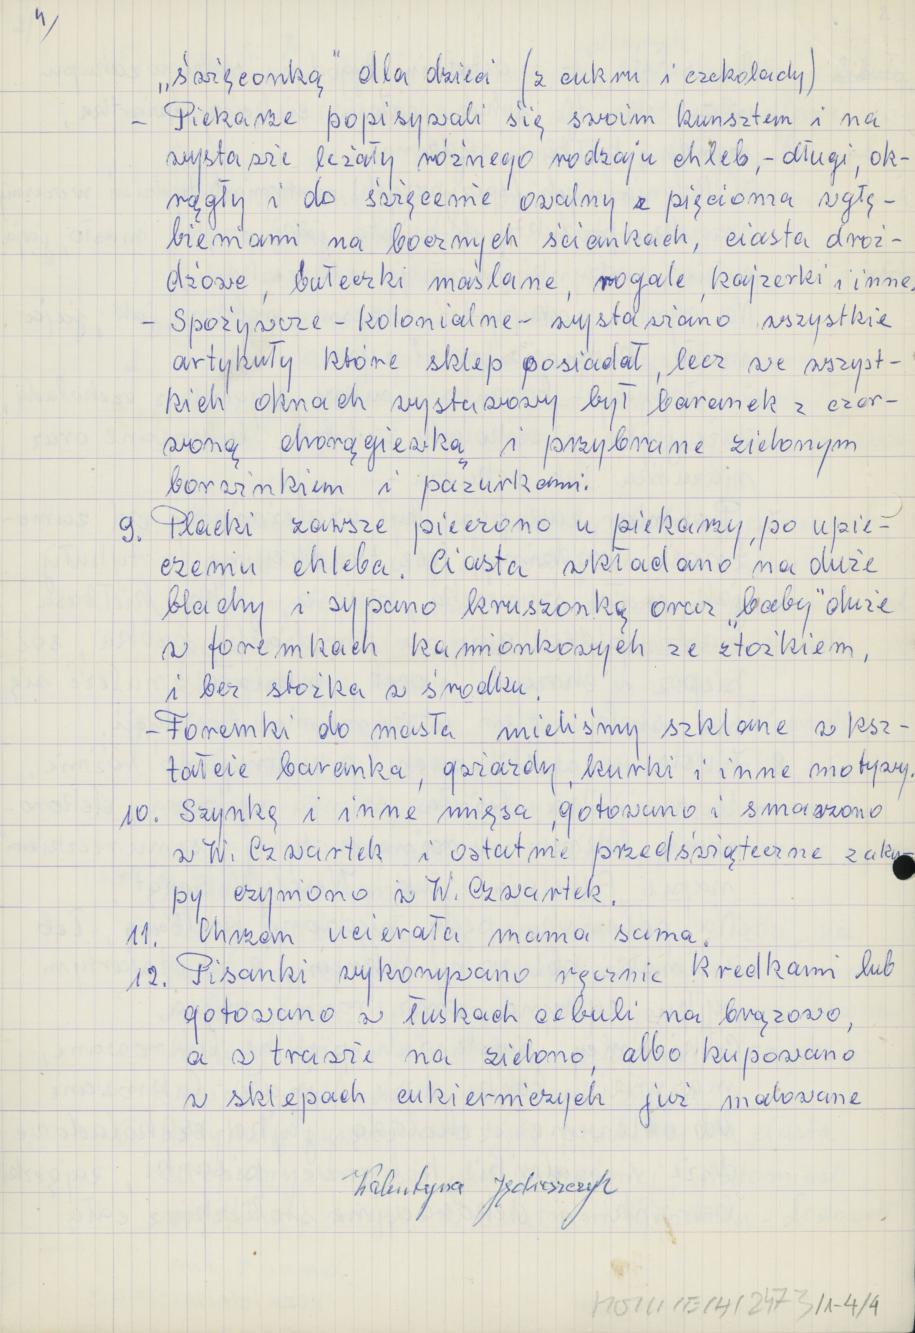 4/
„święconką" dla dzieci (z cukru i czekolady)
- Piekarze popisywali się swoim kunsztem i na
wystawie leżały różnego rodzaju chleb,- długi, ok-
rągły i do święcenie owalny z pięcioma wgłę-
bieniami na bocznych ściankach, ciasta droż-
dżowe, bułeczki maślane, rogale, kajzerki i inne.
- Spożywcze - kolonialne - wystawiano wszystkie
artykuły które sklep posiadał, lecz we wszyst-
kich oknach wystawowy był baranek z czer-
woną chorągiewką i przybrane zielonym
borwinkiem i pazurkami.
9. Placki zawsze pieczono u piekarzy, po upie-
czeniu chleba. Ciasta wkładano na duże
blachy i sypano kruszonką oraz „baby" duże
w foremkach kamionkowych ze stożkiem,
i bez stożka w środku.
- Foremki do masła mieliśmy szklane w ksz-
tałcie baranka, gwiazdy, kurki i inne motywy.
10. Szynkę i inne mięsa, gotowano i smażono
w W. Czwartek i ostatnie przedświąteczne zaku-
py czyniono w W. Czwartek.
11. Chrzan ucierała mama sama.
12. Pisanki wykonywano ręcznie kredkami lub
gotowano w łuskach cebuli na brązowo,
a w trawie na zielono, albo kupowano
w sklepach cukierniczych już malowane
Walentyna
2473/1-4/4